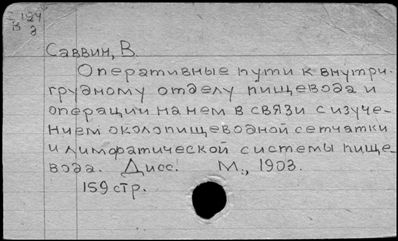 B 124
2
Саввин, В.
Оперативные пути к внутри-
грудному отделу пищевода и
операции на нем в связи с изуче-
нием околопищеводной сетчатки
и лимфатической системы пище-
вода. Дисс. М., 1903.
159 стр.